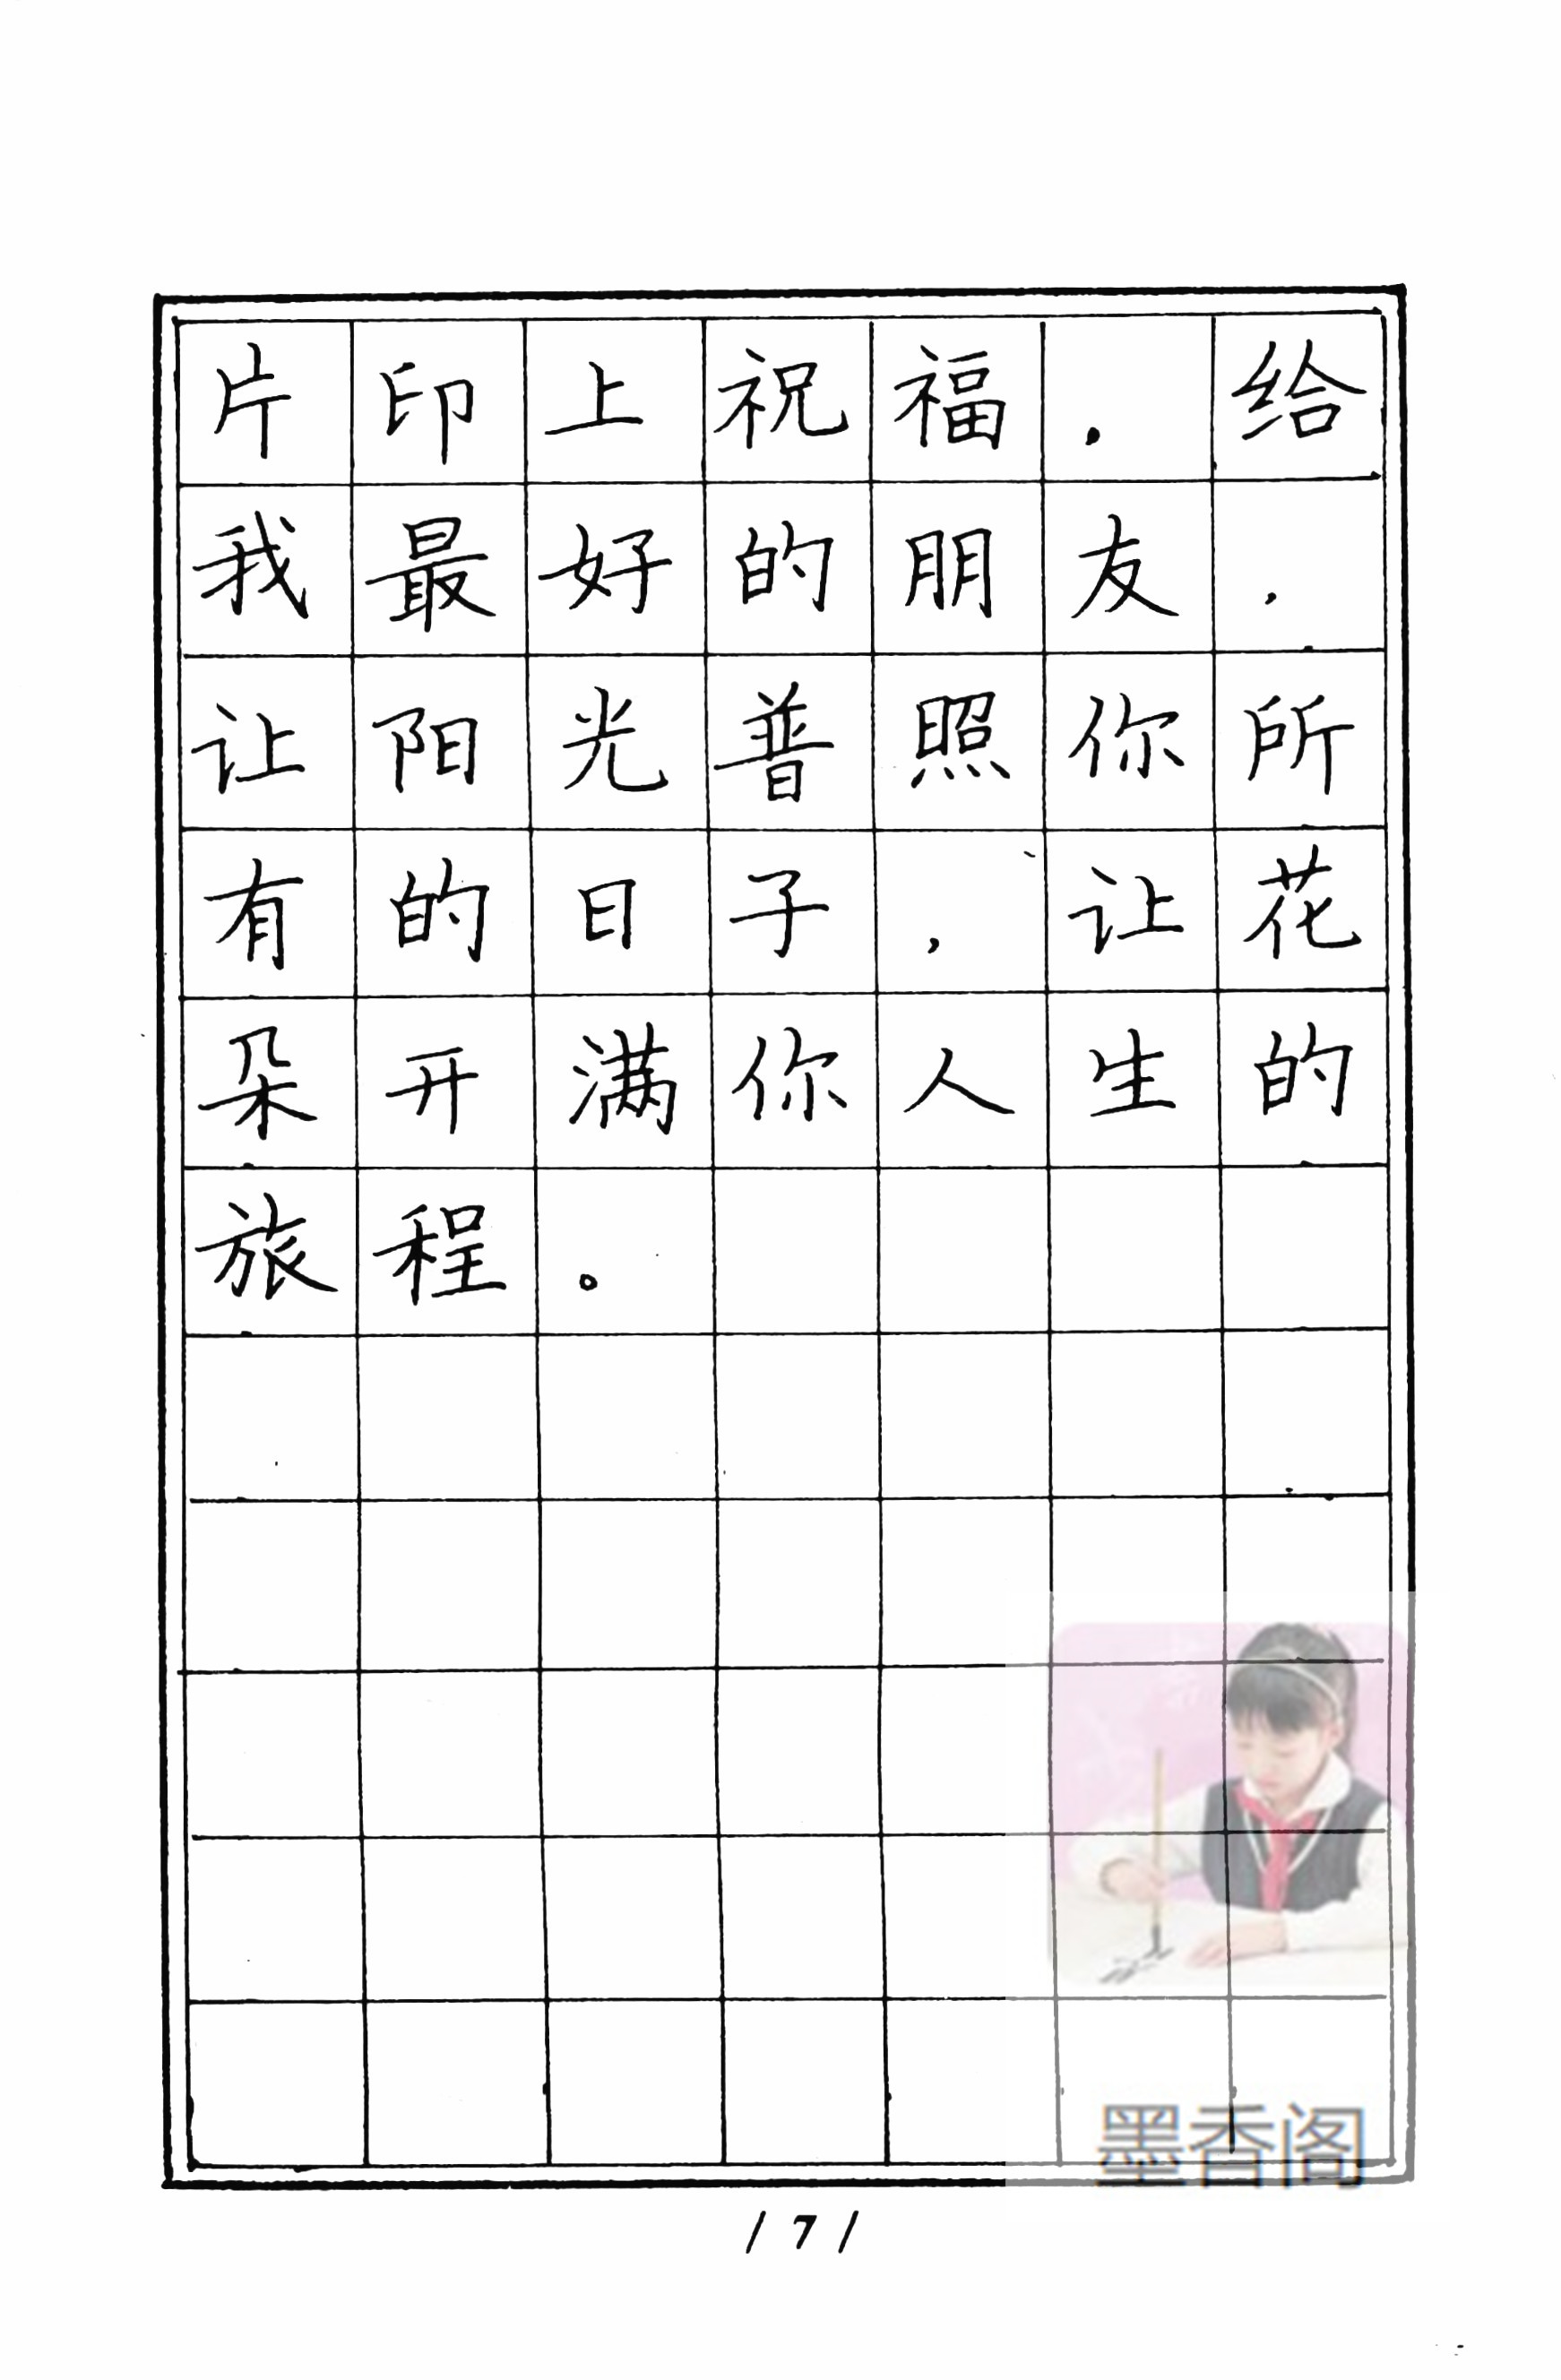 片印上祝福，给
我最好的朋友，
让阳光普照你所
有的日子，让花
朵开满你人生的
旅程。
墨香阁
/ 7 /